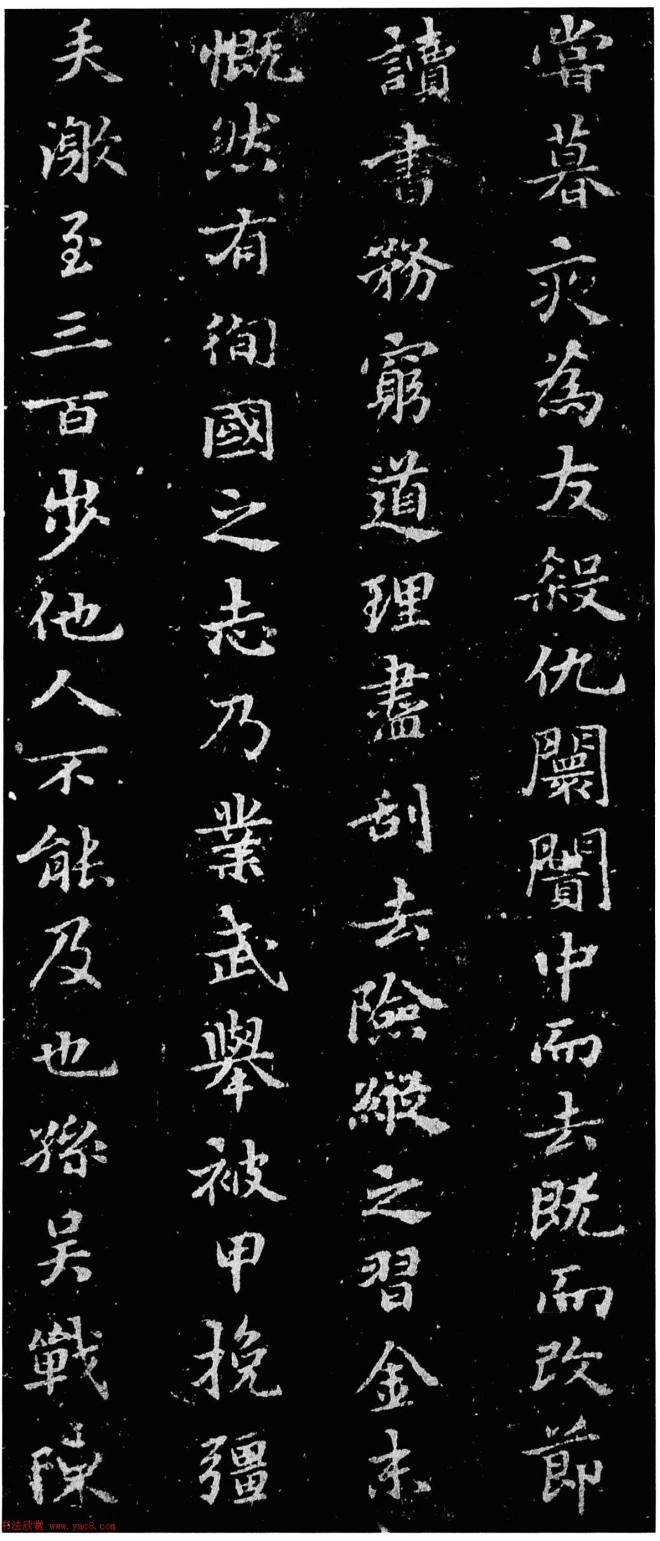 嘗暮夜為友殺仇闤闠中而去既而改節
讀書務窮道理盡刮去險縱之習金末
慨然有徇國之志乃業武舉被甲挽彊
矢激至三百步他人不能及也孫吳戰陳
书法欣赏 www.yac8.com